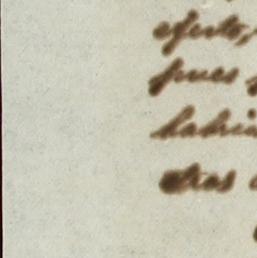 efecto,
pues
habia
otros